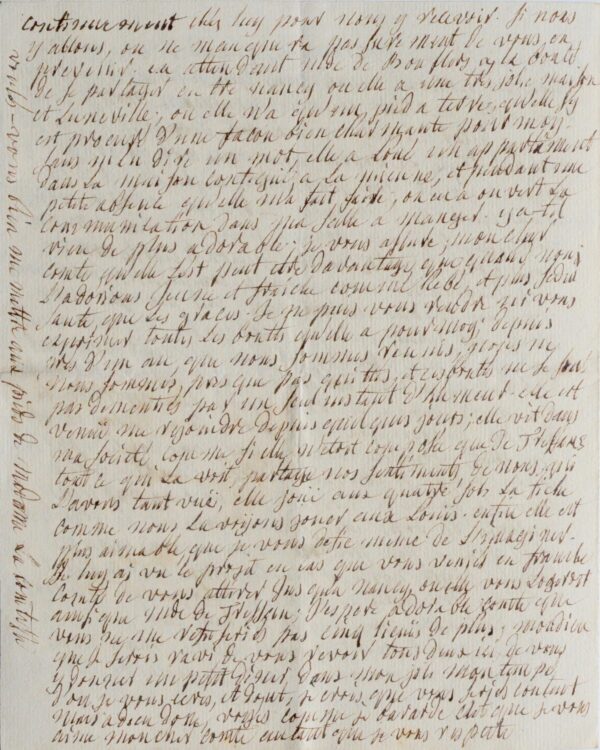 continuement chés luy pour nous y recevoir. Si nous
y allons, on ne manquera pas surement de vous en
prevenir. en attendant mde de Bouflers a la bonté
de se partager entre nancy ou elle a une très jolie maison
et Luneville, ou elle n'a qu'un pied a terre, qu'elle s'y
est procuré d'une facon bien charmante pour moy.
sans m'en dire un mot, elle a loué un appartement
dans La maison contiguë a la mienne, et pendant une
petite absence qu'elle m'a fait faire, on en a ouvert La
communication dans ma salle a manger. y a t-il
rien de plus adorable. je vous assure, mon cher
comte qu'elle l'est peut etre davantage que quand nous
L'adorions jeune et fraiche comme hebé, et plus sedui
sante, que Les graces. je ne puis vous rendre ni vous
exprimer toutes les bontés qu'elle a pour moy; depuis
près d'un an, que nous sommes reunis, nous ne
nous sommes, presque pas quittés, et ses bontés ne se sont
pas dementies par un seul instant d'humeur. elle est
venuë me rejoindre depuis quelques jours; elle vit dans
ma societé comme si elle n'etoit composée que de
tout ce qui La voit, partage nos sentiments de nous qui
L'avons tant vuë, elle jouë aux quatre sols La fiche
comme nous La voyions jouer aux Louis. enfin elle est
plus aimable, que je vous defie meme de L'imaginer.
je luy ai vu le projet en cas que vous veniés en franche
comté de vous attirer jusqu'a nancy, ou elle vous Logeroit
ainsi que mde de Tressan; j'espere adorable comte que
vous ne me refuseriés pas cinq lieuës de plus; mondieu
que je serois ravi de vous revoir tous deux ici de vous
y donner un petit diner dans mon joli
d'ou je vous écris, et dont, je crois que vous seriés content
mais adieu donc, voyés comme je bavarde c'est que je vous
aime mon cher comte autant que je vous respecte
voulés-vous bien me mettre aux pieds de Madame La Comtesse